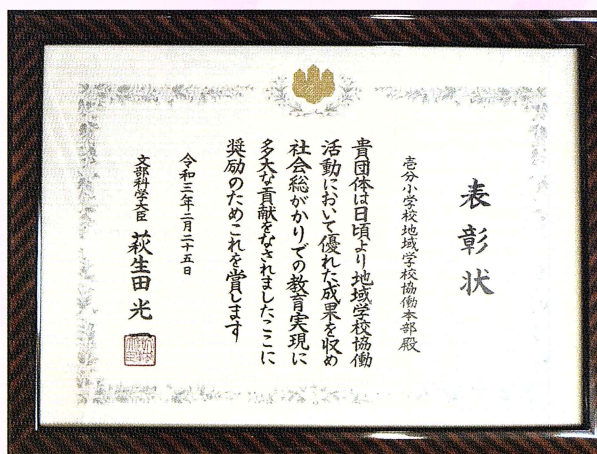 表彰状
壱分小学校地域学校協働本部殿
貴団体は日頃より地域学校協働
活動において優れた成果を収め
社会総がかりでの教育実現に
多大な貢献をなされましたここに
奨励のためこれを賞します
令和三年二月二十五日
文部科学大臣 萩生田光一